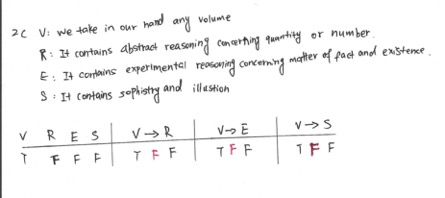 2C V: we take in our hand any volume
R: It contains abstract reasoning concerning quantity or number.
E: It contains experimental reasoning concerning matter of fact and existence.
S: It contains sophistry and illusion
V R E S V→R V→E V→S
T F F F T F F T F F T F F